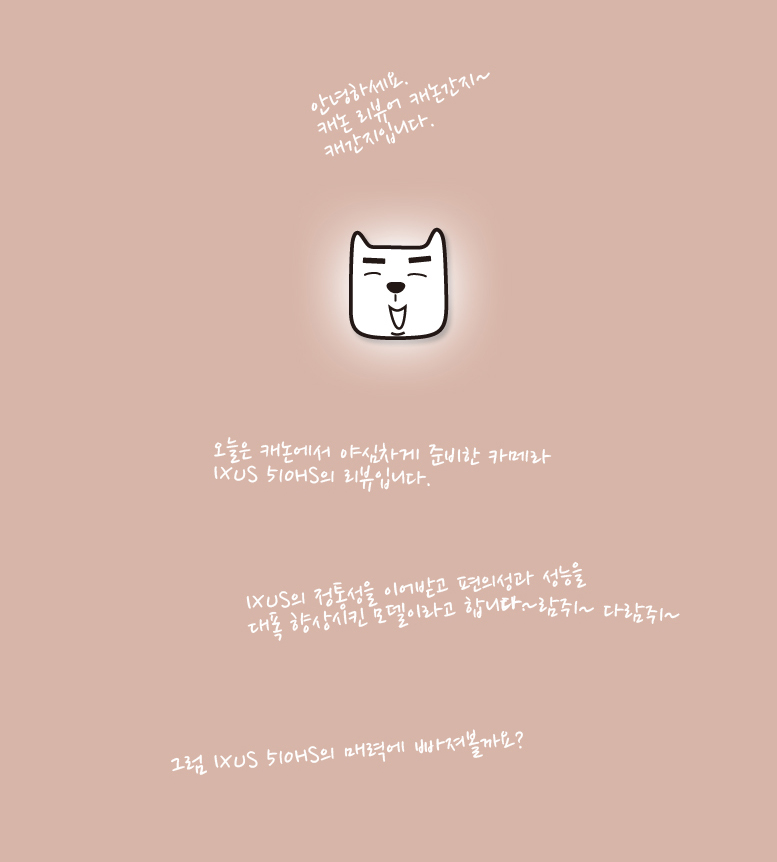 안녕하세요.
캐논 리뷰어 캐논간지~
캐간지입니다.
오늘은 캐논에서 야심차게 준비한 카메라
IXUS 510HS의 리뷰입니다.
IXUS의 정통성을 이어받고 편의성과 성능을
대폭 향상시킨 모델이라고 합니다~람쥐~ 다람쥐~
그럼 IXUS 510HS의 매력에 빠져볼까요?